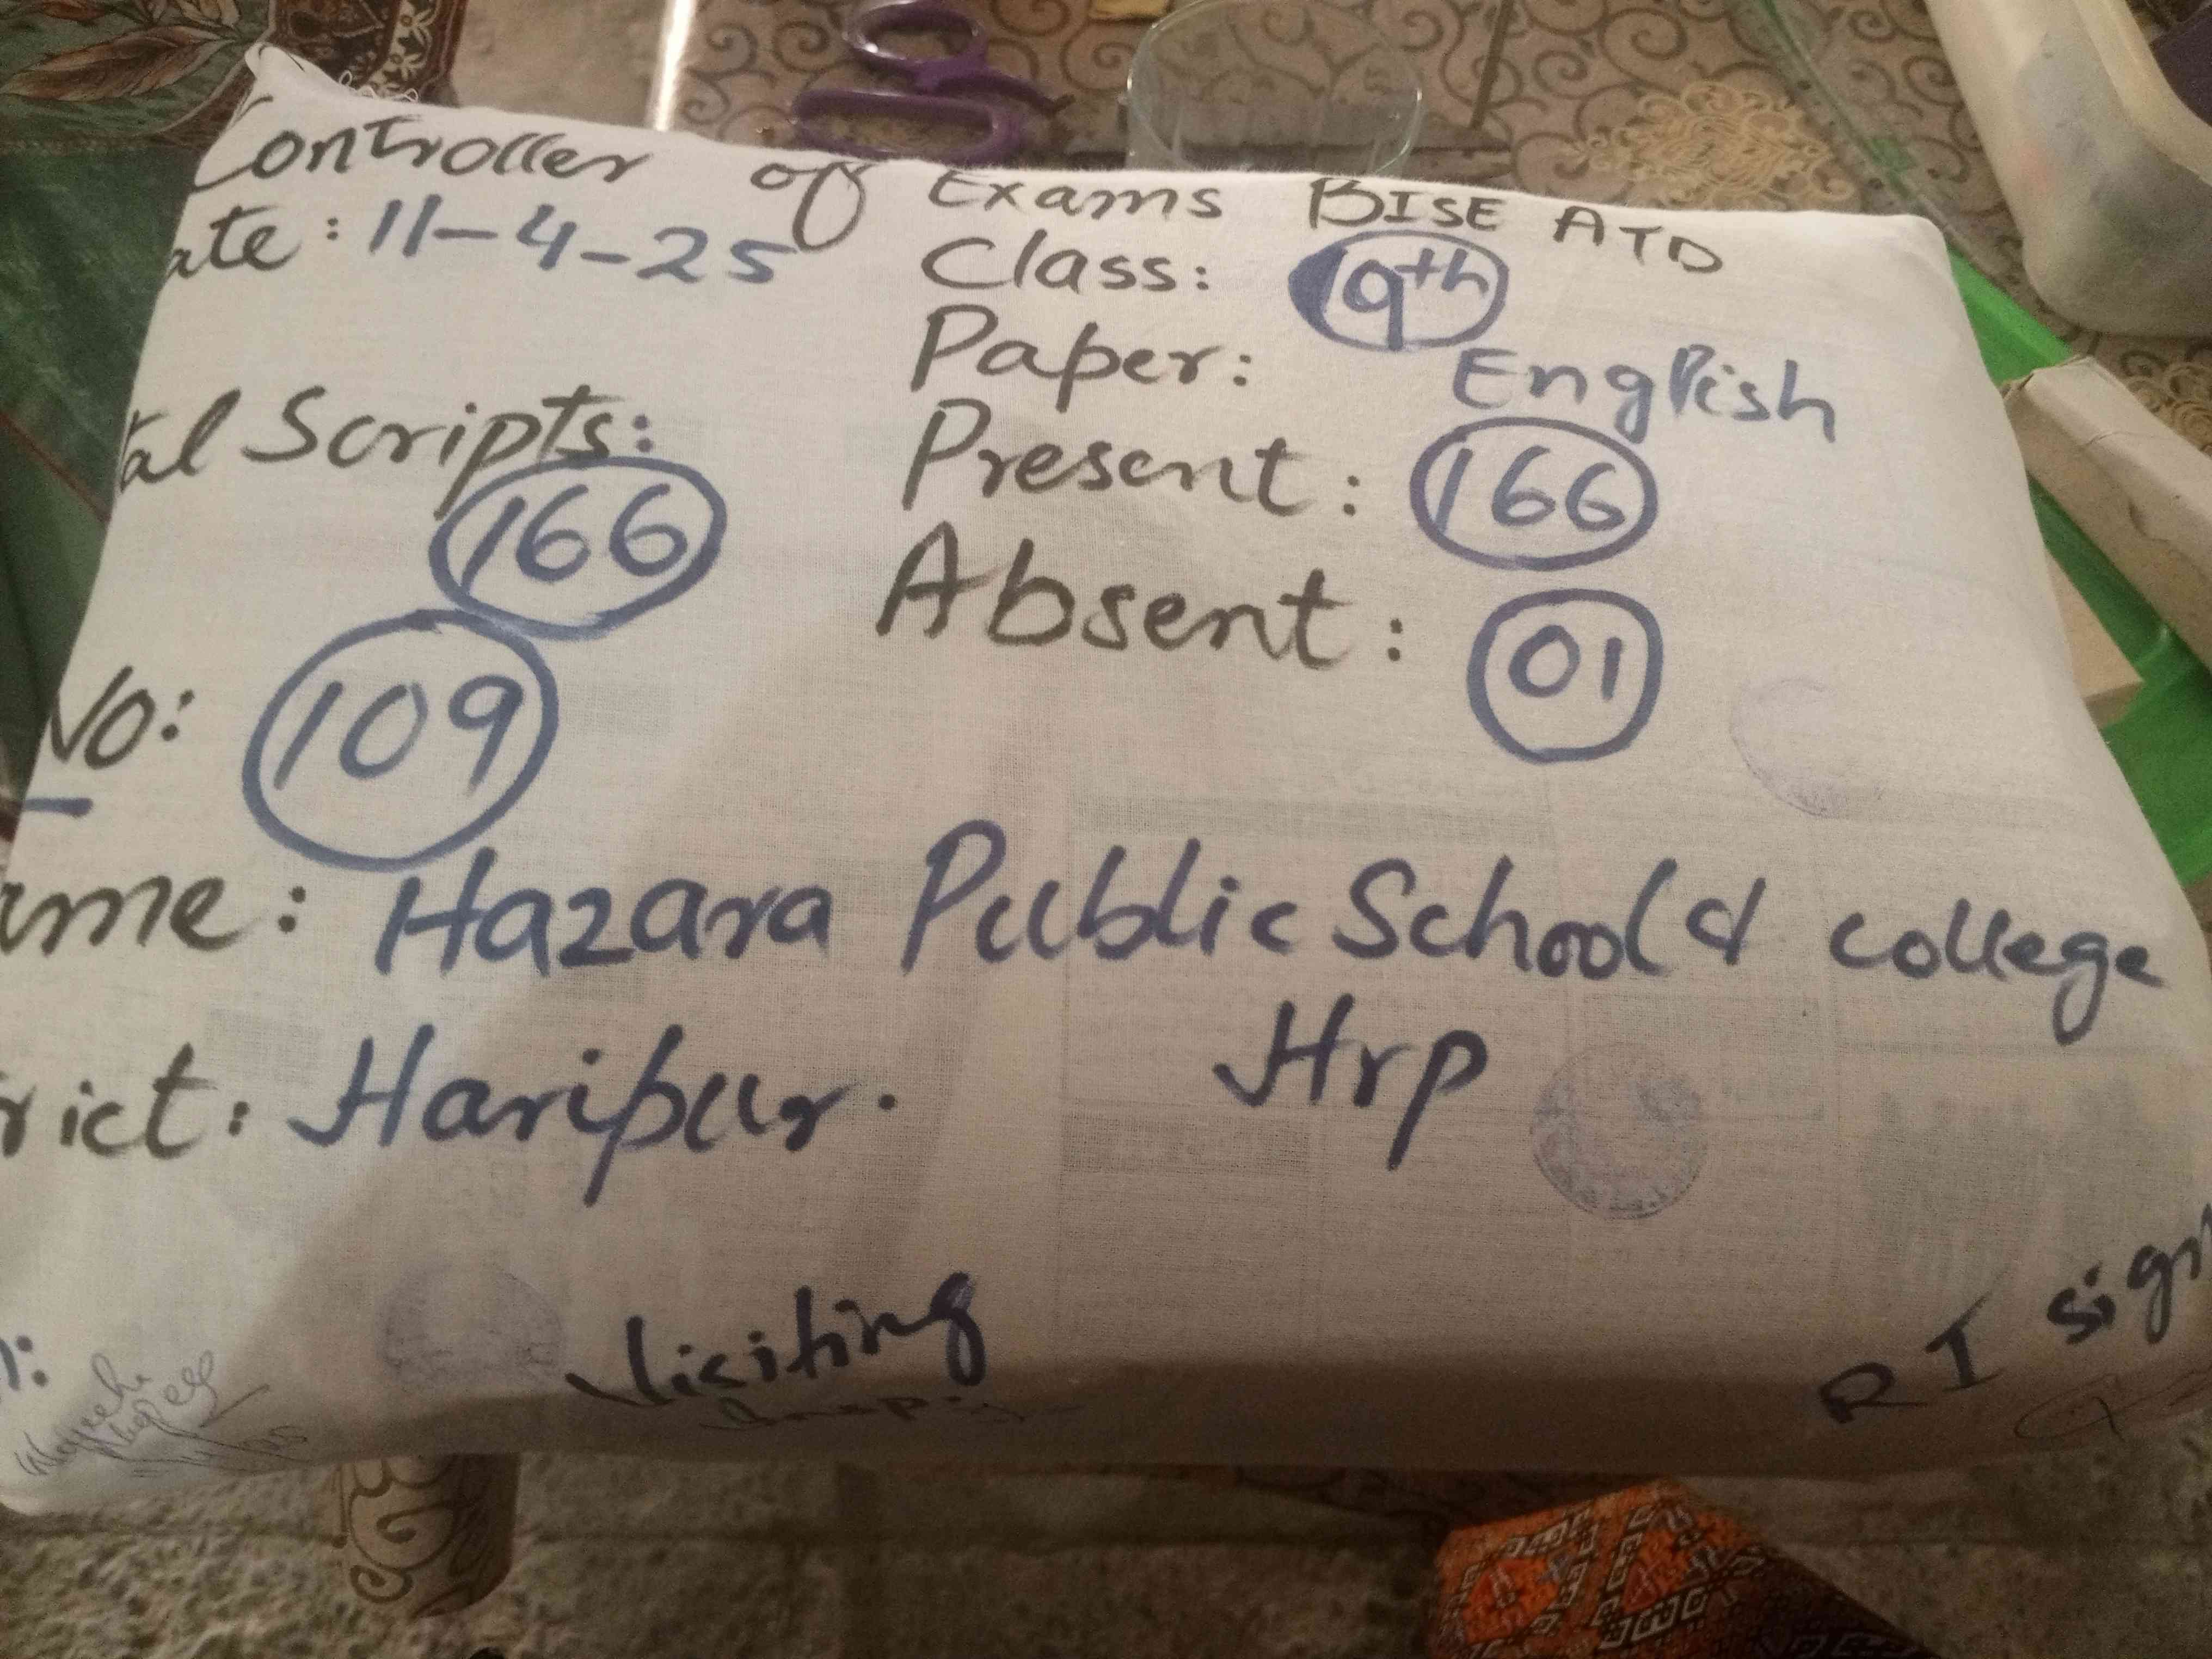 Controller of Exams BISE ATD
ate: 11-4-25
Class: 9th
Paper: English
tal Scripts: 166
Present: 166
Absent: 01
No: 109
ame: Hazara Public School & college
Hrp
rict: Haripur.
Visiting
RI sign